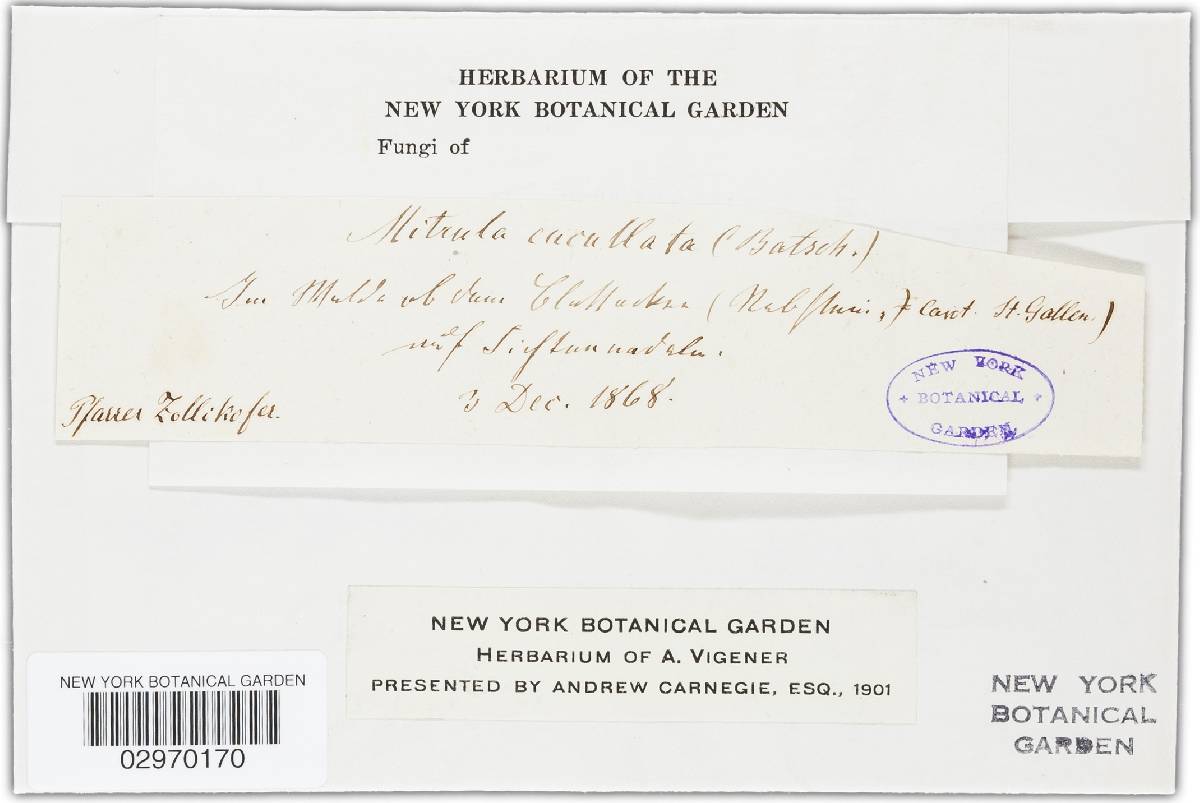 HERBARIUM OF THE
NEW YORK BOTANICAL GARDEN
Fungi of
Mitrula cucullata (Batsch.)
Im Walde ob dem (Rebstein, Cant. St. Gallen.)
auf Fichtennadeln.
3 Dec. 1868.
Pfarrer Zollikofer.
NEW YORK
BOTANICAL
GARDEN
NEW YORK BOTANICAL GARDEN
HERBARIUM OF A. VIGENER
PRESENTED BY ANDREW CARNEGIE, ESQ., 1901
NEW YORK BOTANICAL GARDEN
02970170
NEW YORK
BOTANICAL
GARDEN